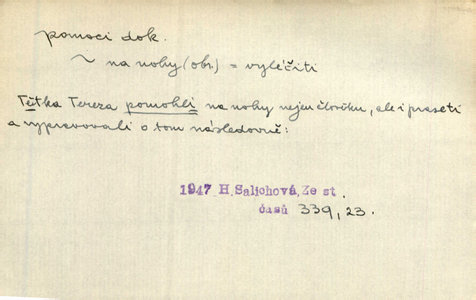 pomoci dok.
~ na nohy (obr.) = vyléčiti
Tětka Tereza pomohli na nohy nejen člověku, ale i praseti
a vypravovali o tom následovně:
1947 H.Salichová, Ze st.
časů 339, 23.